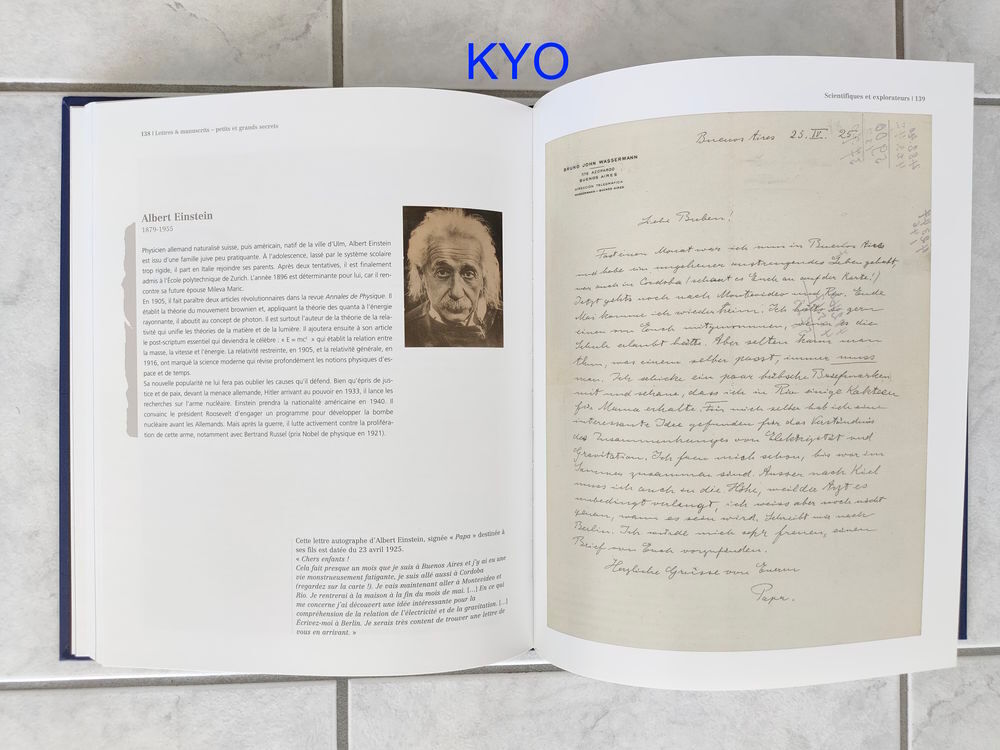 KYO
138 | Lettres & manuscrits – petits et grands secrets
Albert Einstein
1879-1955
Physicien allemand naturalisé suisse, puis américain, natif de la ville d'Ulm, Albert Einstein
est issu d'une famille juive peu pratiquante. À l'adolescence, lassé par le système scolaire
trop rigide, il part en Italie rejoindre ses parents. Après deux tentatives, il est finalement
admis à l'École polytechnique de Zurich. L'année 1896 est déterminante pour lui, car il ren-
contre sa future épouse Mileva Maric.
En 1905, il fait paraître deux articles révolutionnaires dans la revue Annales de Physique. Il
établit la théorie du mouvement brownien et, appliquant la théorie des quanta à l'énergie
rayonnante, il aboutit au concept de photon. Il est surtout l'auteur de la théorie de la rela-
tivité qui unifie les théories de la matière et de la lumière. Il ajoutera ensuite à son article
le post-scriptum essentiel qui deviendra le célèbre : « E = mc² » qui établit la relation entre
la masse, la vitesse et l'énergie. La relativité restreinte, en 1905, et la relativité générale, en
1916, ont marqué la science moderne qui révise profondément les notions physiques d'es-
pace et de temps.
Sa nouvelle popularité ne lui fera pas oublier les causes qu'il défend. Bien qu'épris de jus-
tice et de paix, devant la menace allemande, Hitler arrivant au pouvoir en 1933, il lance les
recherches sur l'arme nucléaire. Einstein prendra la nationalité américaine en 1940. Il
convainc le président Roosevelt d'engager un programme pour développer la bombe
nucléaire avant les Allemands. Mais après la guerre, il lutte activement contre la proliféra-
tion de cette arme, notamment avec Bertrand Russel (prix Nobel de physique en 1921).
Cette lettre autographe d'Albert Einstein, signée « Papa » destinée à
ses fils est datée du 23 avril 1925.
« Chers enfants !
Cela fait presque un mois que je suis à Buenos Aires et j'y ai eu une
vie monstrueusement fatigante, je suis allé aussi à Cordoba
(regardez sur la carte !). Je vais maintenant aller à Montevideo et
Rio. Je rentrerai à la maison à la fin du mois de mai. [...] En ce qui
me concerne j'ai découvert une idée intéressante pour la
compréhension de la relation de l'électricité et de la gravitation. [...]
Écrivez-moi à Berlin. Je serais très content de trouver une lettre de
vous en arrivant. »
Scientifiques et explorateurs | 139
Buenos Aires 23. IV. 25.
BRUNO JOHN WASSERMANN
770 AZOPARDO
BUENOS AIRES
DIRECCION TELEGRAFICA
WASSERMANN – BUENOS AIRES
Liebe Buben!
Fast einen Monat war ich nun in Buenos Aires
und habe ein ungeheuer anstrengendes Leben gehabt
war auch in Cordoba (schaut es Euch an auf der Karte!)
Jetzt gehts noch nach Montevideo und Rio. Ende
Mai komme ich wieder heim. Ich hätte so gern
einen von Euch mitgenommen, wenn es die
Schule erlaubt hätte. Aber selten kann man
thun, was einem selber passt, immer muss
man. Ich schicke ein paar hübsche Briefmarken
mit und schaue, dass ich in Rio einige Kakteen
für Mama erhalte. Für mich selber hab ich eine
interessante Idee gefunden für das Verständnis
des Zusammenhanges von Elektrizität und
Gravitation. Ich freu mich schon, bis wir im
Sommer zusammen sind. Ausser nach Kiel
muss ich auch in die Höhe, weil der Arzt es
unbedingt verlangt, ich weiss aber noch nicht
genau, wann es sein wird. Schreibt mir nach
Berlin. Ich würde mich sehr freuen, einen
Brief von Euch vorzufinden.
Herzliche Grüsse von Eurem
Papa.